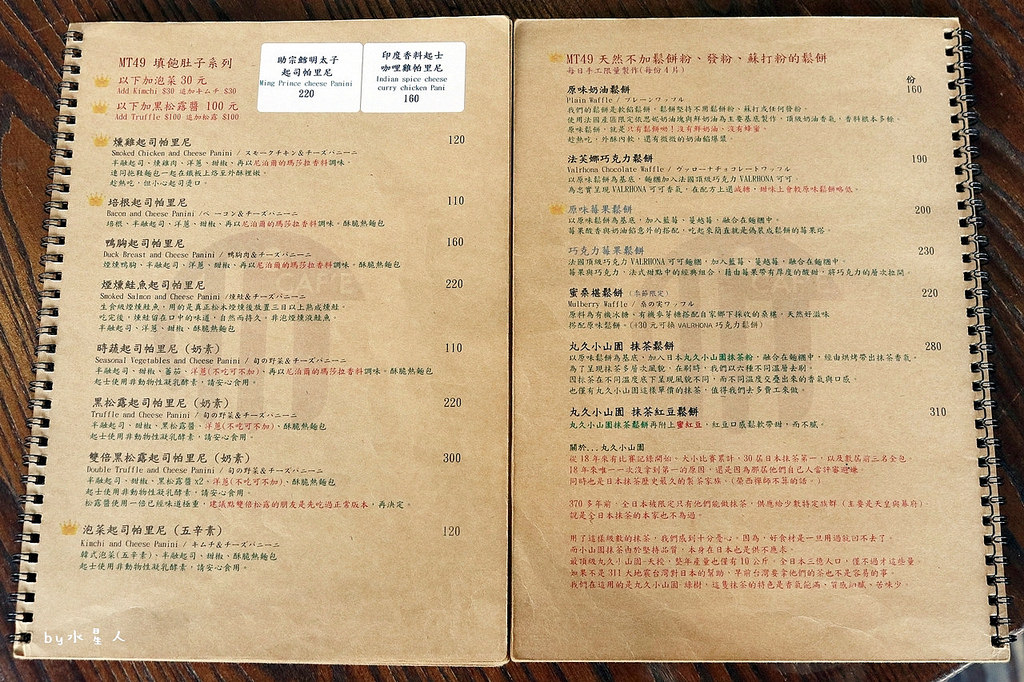 MT49 填飽肚子系列
以下加泡菜 30 元
Add Kimchi $30 追加キムチ $30
以下加黑松露醬 100 元
Add Truffle $100 追加松露 $100
助宗鱈明太子
起司帕里尼
Ming Prince cheese Panini
220
印度香料起士
咖哩雞帕里尼
Indian spice cheese
curry chicken Pani
160
燻雞起司帕里尼 120
Smoked Chicken and Cheese Panini / スモークチキン&チーズパニーニ
半融起司、燻雞肉、洋蔥、甜椒、再以尼泊爾的瑪莎拉香料調味。
連同拖鞋麵包一起在鐵板上烙至外酥裡嫩。
趁熱吃,但小心起司燙口。
培根起司帕里尼 110
Bacon and Cheese Panini /ベーコン&チーズパニーニ
培根、半融起司、洋蔥、甜椒、再以尼泊爾的瑪莎拉香料調味。酥脆熱麵包
鴨胸起司帕里尼 160
Duck Breast and Cheese Panini / 鴨胸肉&チーズパニーニ
煙燻鴨胸、半融起司、洋蔥、甜椒、再以尼泊爾的瑪莎拉香料調味。酥脆熱麵包
煙燻鮭魚起司帕里尼 220
Smoked Salmon and Cheese Panini /燻鮭&チーズパニーニ
生食級煙燻鮭魚,用的是真正松木煙燻後放置三日以上熟成燻鮭。
吃完後,燻鮭留在口中的味道,自然而持久,非泡煙燻液鮭魚。
半融起司、洋蔥、甜椒、酥脆熱麵包
時蔬起司帕里尼 (奶素) 110
Seasonal Vegetables and Cheese Panini / 旬の野菜&チーズパニーニ
半融起司、甜椒、蕃茄、洋蔥(不吃可不加)、再以尼泊爾的瑪莎拉香料調味。酥脆熱麵包
起士使用非動物性凝乳酵素,請安心食用。
黑松露起司帕里尼 (奶素) 220
Truffle and Cheese Panini / 旬の野菜&チーズパニーニ
半融起司、甜椒、黑松露醬、洋蔥(不吃可不加)、酥脆熱麵包
起士使用非動物性凝乳酵素,請安心食用。
雙倍黑松露起司帕里尼 (奶素) 300
Double Truffle and Cheese Panini / 旬の野菜&チーズパニーニ
半融起司、甜椒、黑松露醬 x2、洋蔥(不吃可不加)、酥脆熱麵包
起士使用非動物性凝乳酵素,請安心食用。
松露醬使用一倍已經味道極重,建議點雙倍松露的朋友是先吃過正常版本,再決定。
泡菜起司帕里尼 (五辛素) 120
Kimchi and Cheese Panini / キムチ&チーズパニーニ
韓式泡菜(五辛素)、半融起司、甜椒、酥脆熱麵包
起士使用非動物性凝乳酵素,請安心食用。
by水星人
MT49 天然不加鬆餅粉、發粉、蘇打粉的鬆餅
每日手工限量製作(每份 4 片)
份
原味奶油鬆餅 160
Plain Waffle / プレーンワッフル
我們的鬆餅是軟餡鬆餅,鬆餅堅持不用鬆餅粉、蘇打或任何發粉。
使用法國產區限定依思妮奶油塊與鮮奶油為主要基底製作,頂級奶油香氣,香料根本多餘。
原味鬆餅,就是只有鬆餅喲!沒有鮮奶油、沒有蜂蜜。
趁熱吃,外酥內軟,還有微微的奶油餡爆漿
法芙娜巧克力鬆餅 190
Valrhona Chocolate Waffle / ヴァローナチョコレートワッフル
以原味鬆餅為基底,麵糰加入法國頂級巧克力 VALRHONA 可可,
為忠實呈現 VALRHONA 可可香氣,在配方上選減糖,甜味上會較原味鬆餅略低。
原味莓果鬆餅 200
以原味鬆餅為基底,加入藍莓、蔓越莓,融合在麵糰中。
莓果酸香與奶油餡意外的搭配,吃起來簡直就是偽裝成鬆餅的莓果塔。
巧克力莓果鬆餅 230
法國頂級巧克力 VALRHONA 可可麵糰,加入藍莓、蔓越莓,融合在麵糰中。
莓果與巧克力,法式甜點中的經典組合,藉由莓果帶有厚度的酸甜,將巧克力的層次拉開。
蜜桑椹鬆餅 (季節限定) 220
Mulberry Waffle / 桑の実ワッフル
原料為有機冰糖、有機麥芽糖搭配自家鄉下採收的桑椹,天然好滋味
搭配原味鬆餅。(+30 元可換 VALRHONA 巧克力鬆餅)
丸久小山園 抹茶鬆餅 280
以原味鬆餅為基底,加入日本丸久小山園抹茶粉,融合在麵糰中,經由烘烤帶出抹茶香氣。
為了呈現抹茶多層次風貌,在刷時,我們以六種不同溫層去刷。
因抹茶在不同溫度底下呈現風貌不同,而不同溫度交疊出來的香氣與口感。
也僅有丸久小山園這樣單價的抹茶,值得我們去多費工來做
丸久小山園 抹茶紅豆鬆餅 310
丸久小山園抹茶鬆餅再附上蜜紅豆,紅豆口感鬆軟帶甜,而不膩。
關於...丸久小山園
從 18 年來有比賽記錄開始,大小比賽累計,30 屆日本抹茶第一,以及數屆前三名全包。
18 年來唯一一次沒拿到第一的原因,還是因為那屆他們自己人當評審避嫌
同時也是日本抹茶歷史最久的製茶家族。(榮西禪師不算的話。)
370 多年前,全日本被限定只有他們能做抹茶,供應給少數特定族群 (主要是天皇與幕府)
說是全日本抹茶的本家也不為過。
用了這樣級數的抹茶,我們感到十分憂心,因為,好食材是一旦用過就回不去了。
而小山園抹茶由於堅持品質,本身在日本也是供不應求。
最頂級丸久小山園-天授,整年產量也僅有 10 公斤,全日本三億人口,僅不過才這些量。
如果不是 311 大地震台灣對日本的幫助,早前台灣要拿他們的茶也不是容易的事。
我們在這用的是丸久小山園-綠樹,這隻抹茶的特色是香氣飽滿,質感細膩、苦味少。